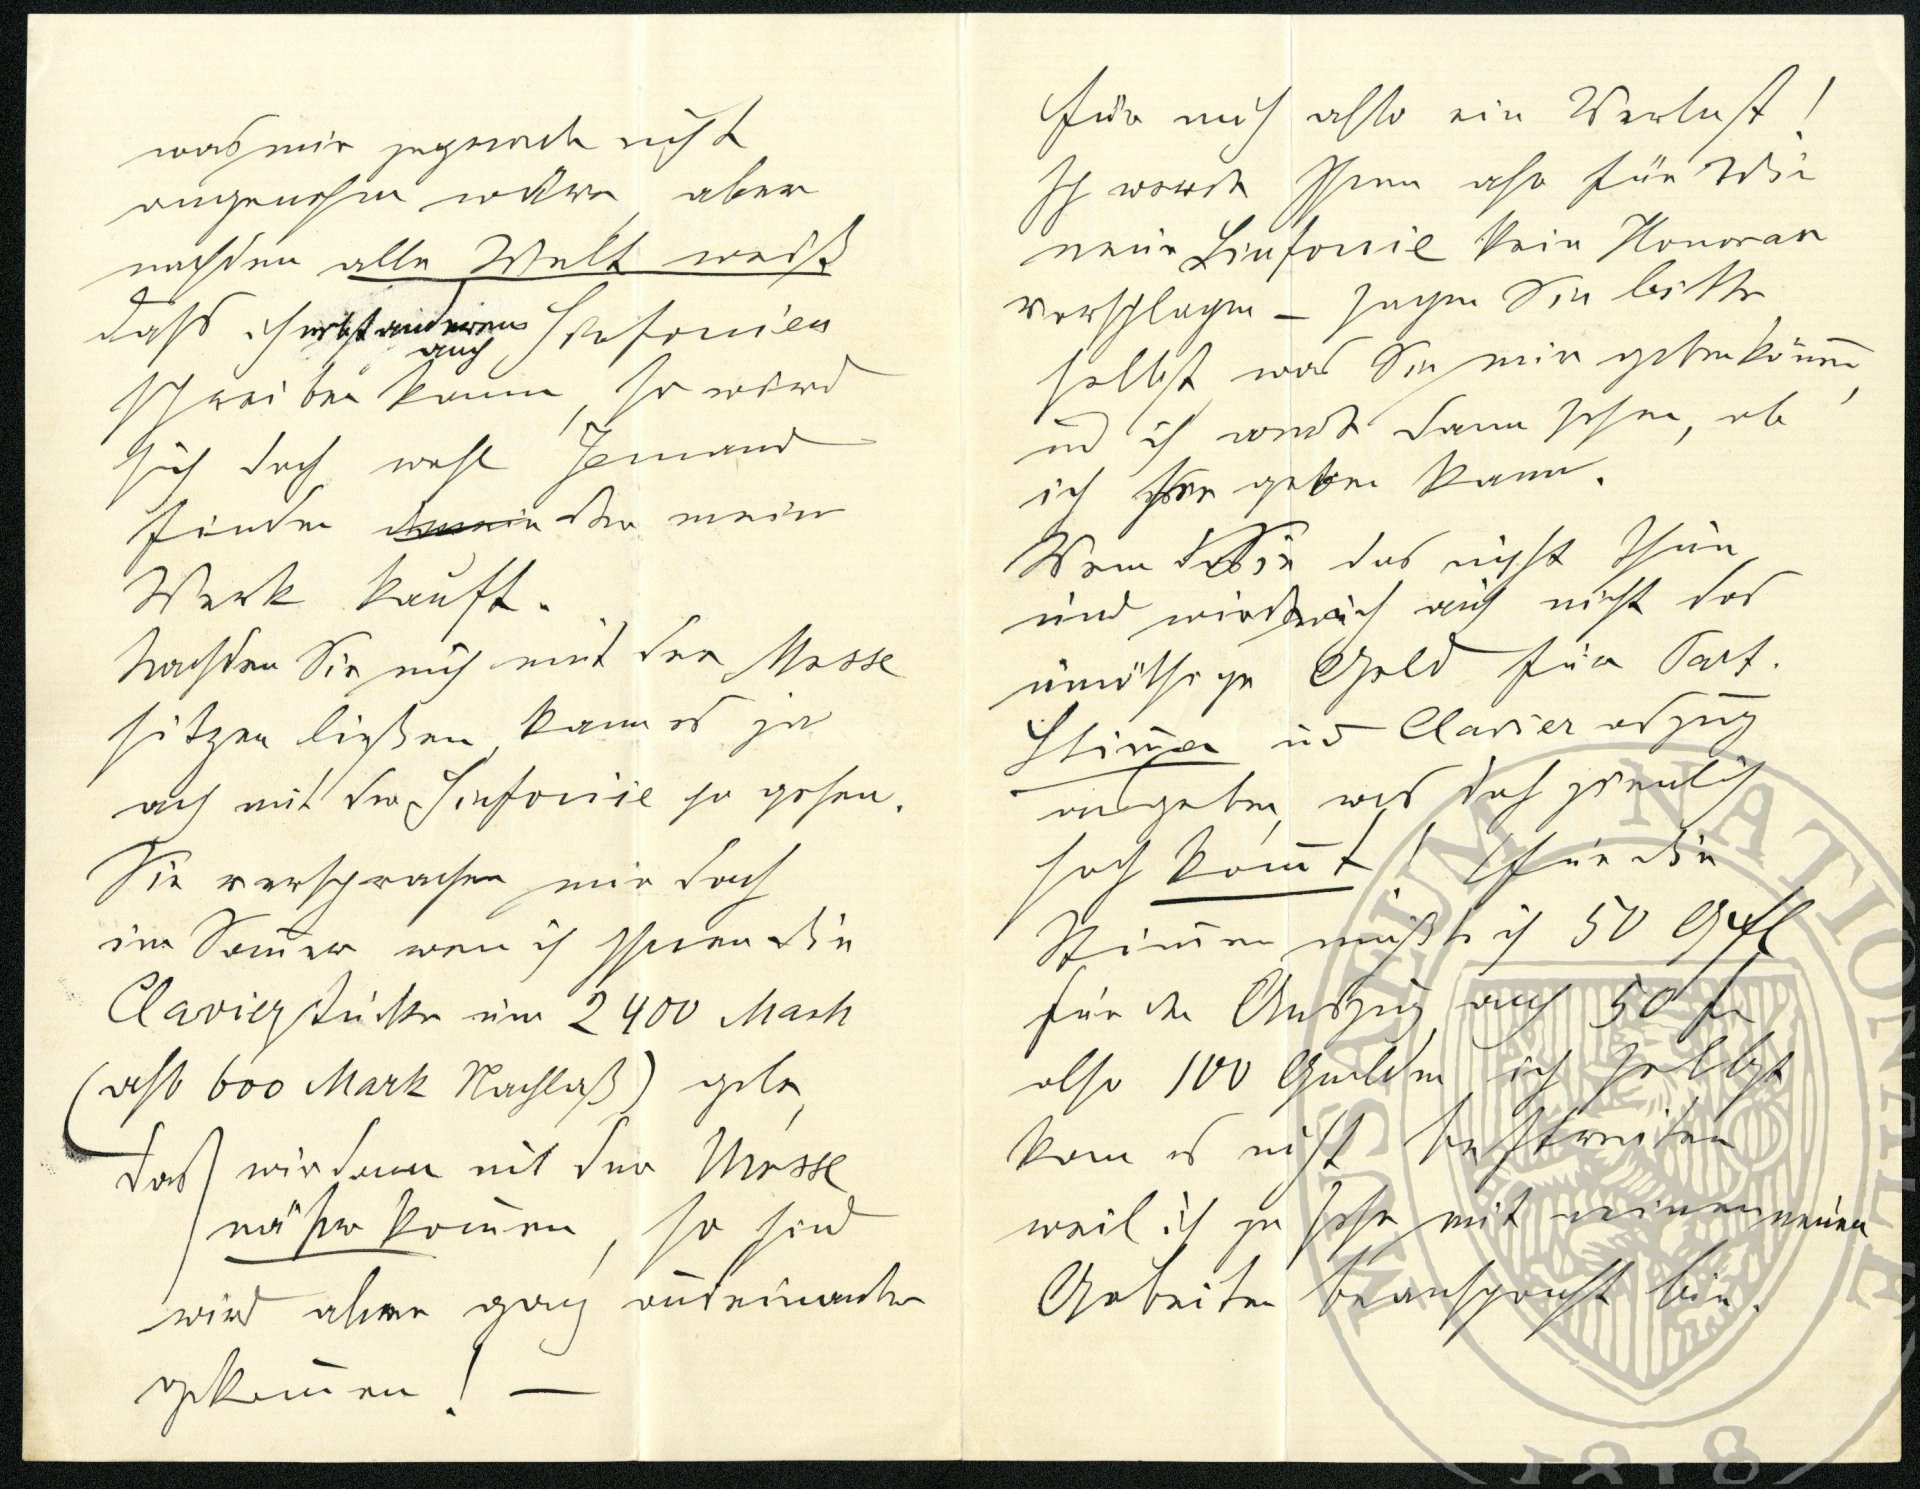 was mir zugerade nicht
angenehm wäre, aber
nachdem alle Welt weiß
dass ich nebst anderem Sinfonien
auch
schreiben kann, so wird
sich doch wohl Jemand
finden der mein
Werk kauft.
Nachdem Sie mich mit der Messe
sitzen ließen, kann es ja
auch mit der Sinfonie so gehen.
Sie versprachen mir doch
im Sommer wenn ich Ihnen die
Clavierstücke um 2400 Mark
(also 600 Mark Nachlaß) gebe,
daß wir dann mit der Messe
näher kom̅en, so sind
wir aber ganz auseinander
gekom̅en! —
Für mich also ein Verlust!
Ich werde Ihnen also für die
neue Sinfonie kein Honorar
vorschlagen – sagen Sie bitte
selbst was Sie mir geben kön̅en,
und ich werde dann sehen, ob
ich sie geben kann.
Wenn Sie das nicht thun,
und würde ich auch nicht das
unnöthige Geld für Part.
Stim̅en und Clavierauszug
ausgeben, was doch ziemlich
hoch kom̅t! Für die
Stim̅en mußte ich 50 Gfl
für den Auszug auch 50 fl
also 100 Gulden, ich selbst
kann es nicht bestreiten
weil ich zu sehr mit meinen neuen
Arbeiten beansprucht bin.
MUSAEUM NATIONALE
1818